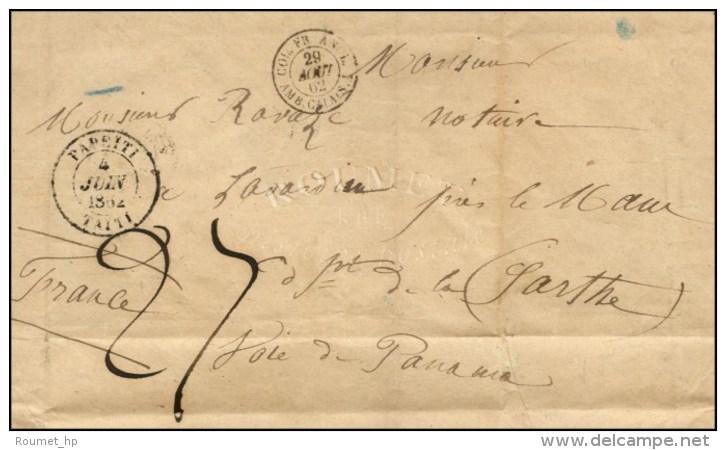 COL. FR. ANGL.
29
AOUT
62
AMB. CALAIS
Monsieur
Monsieur notaire
PAPEITI
4
JUIN
1862
TAITI
à Lavardin près le Mans
dpt de la (Sarthe)
France
27
Voie de Panama
© Roumet_hp
delcampe.net